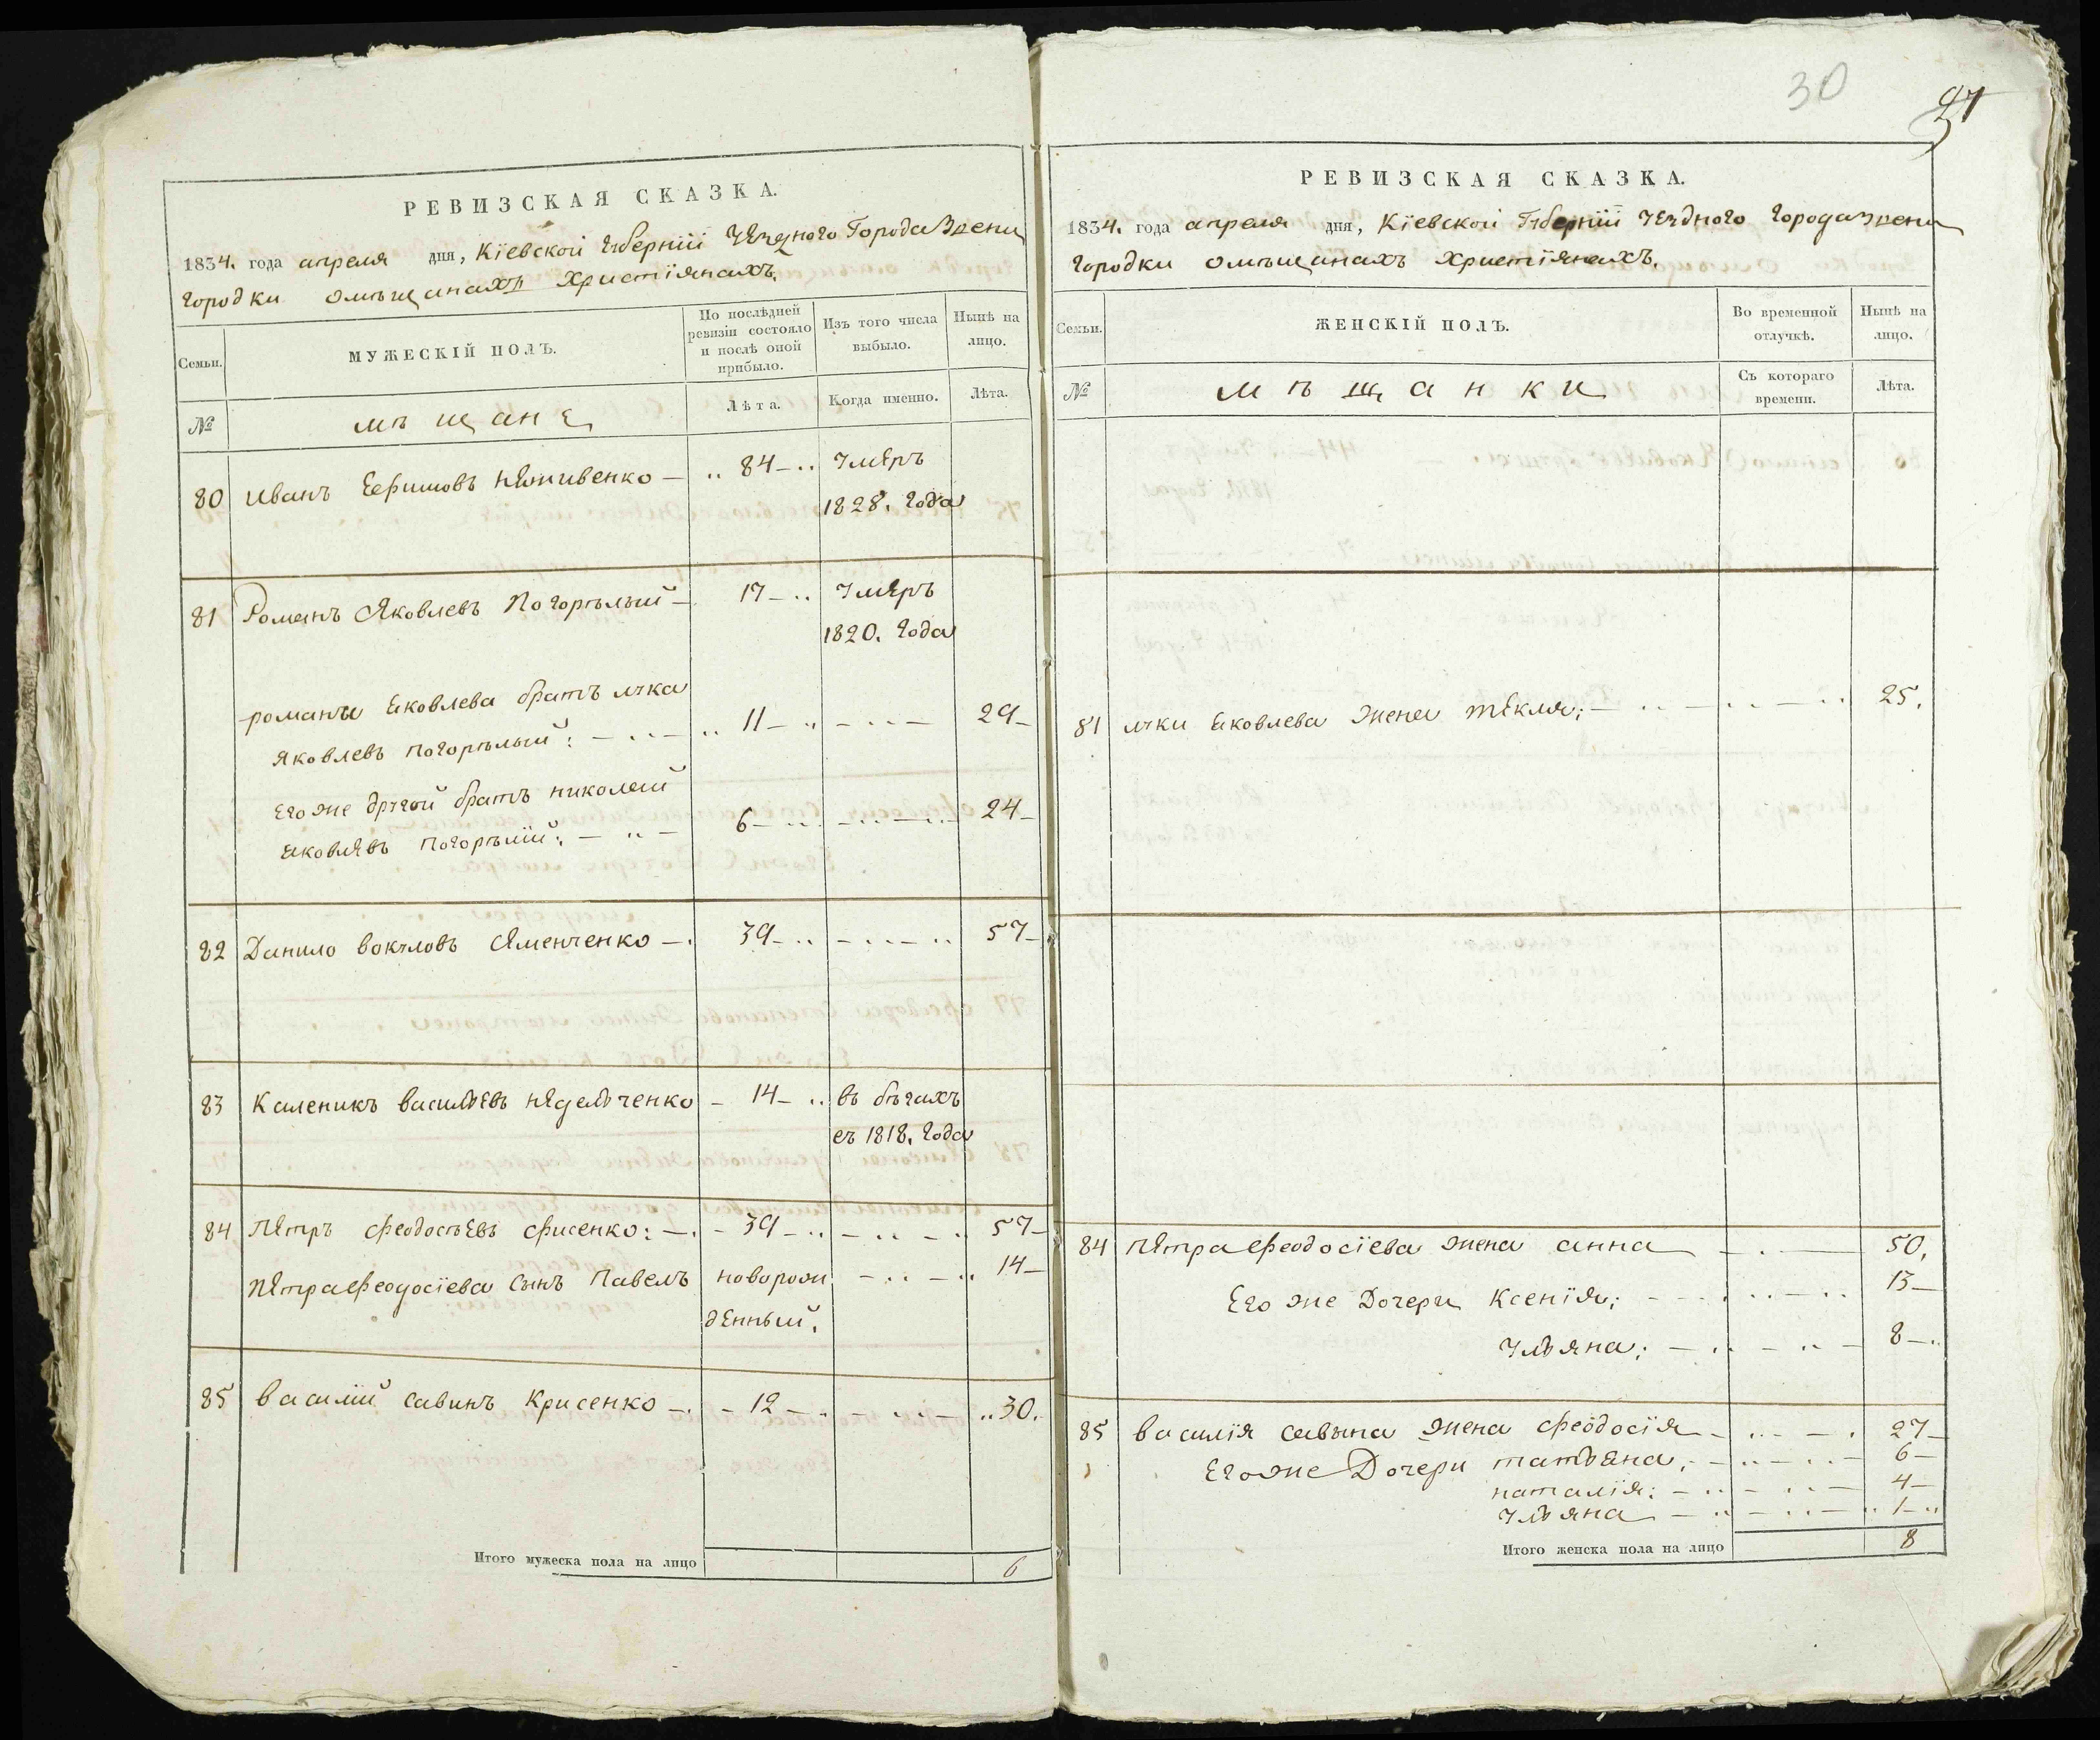 РЕВИЗСКАЯ СКАЗКА.
1834. года апреля дня, Кіевской Губерніи Уезднаго Города Звени
городки омѣщанахъ Христіянахъ.
Семьи.
МУЖЕСКІЙ ПОЛЪ.
По послѣдней
ревизіи состояло
и послѣ оной
прибыло.
Изъ того числа
выбыло.
Нынѣ на
лицо.
№
мѣщане
Лѣта.
Когда именно.
Лѣта.
80 Иванъ Ефимовъ — 84 — умеръ
1828. года
81 Романъ Яковлевъ Погорѣлый — 17 — умеръ
1820. года
романа яковлева братъ лука
яковлевъ погорѣлый: — 11 — 29 —
его же другой братъ николай
яковлевъ погорѣлій: — 6 — 24 —
82 Данило вокуловъ Яменченко — 39 — 57 —
83 Каленикъ васильевъ неделченко — 14 — въ бѣгахъ
съ 1818. года
84 Петръ феодосѣевъ фисенко: — 39 — 57 —
петра феодосіева сынъ Павелъ новорож 14 —
денный.
85 василій савинъ Крисенко — 12 — 30.
Итого мужеска пола на лицо 6
30
РЕВИЗСКАЯ СКАЗКА.
1834. года апреля дня, Кіевской Губерніи Уездного города звени
городки омѣщанахъ христіянахъ.
Семьи.
ЖЕНСКІЙ ПОЛЪ.
Во временной
отлучкѣ.
Нынѣ на
лицо.
№
мѣщанки
Съ котораго
времени.
Лѣта.
81 луки яковлева жена текля; — 25.
84 петра феодосіева жена анна — 50.
Его же Дочери Ксенія; — 13 —
ульяна; — 8 —
85 василія савына жена феодосія — 27 —
Его же Дочери татьяна; — 6 —
наталія; — 4 —
ульяна — 1 —
Итого женска пола на лицо 8